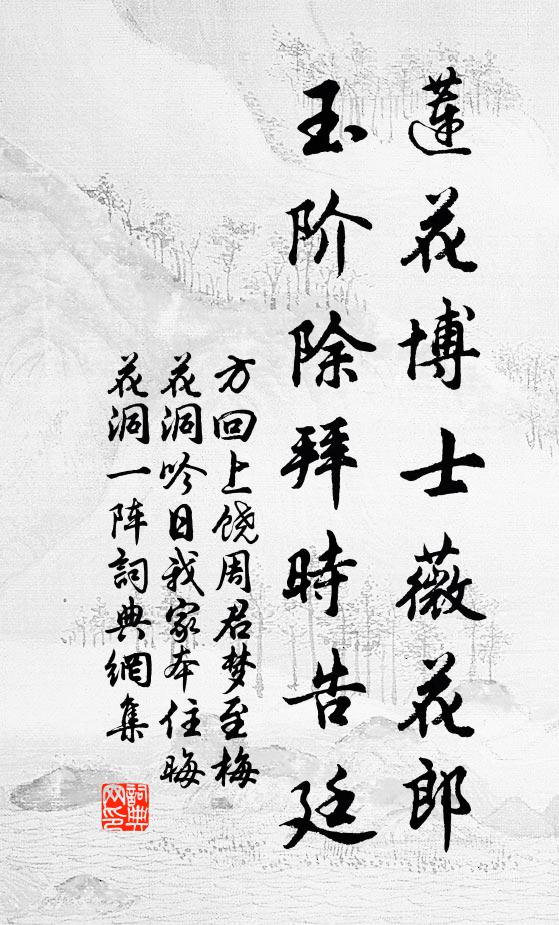 蓮花博士薇花郎
玉阶除拜時告廷
方回上饶周君梦至梅
花洞吟日我家本住晦
花洞一阵詞典網集
詞典網印